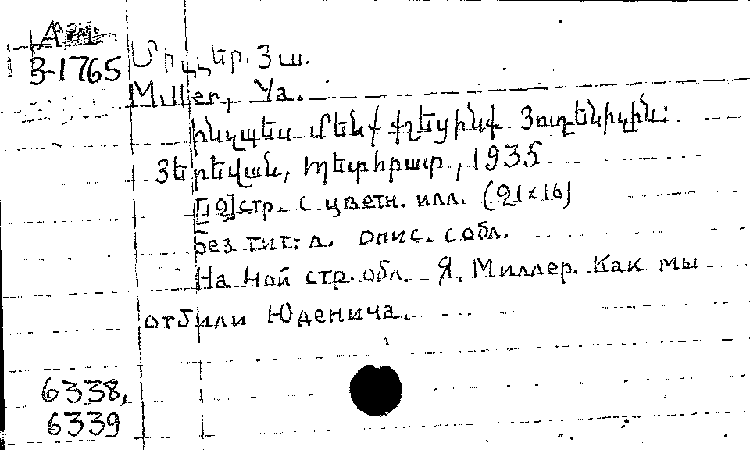 Арм
3-1765
Միլլեր. Յա.
Miller, Ya.
Ինչպես մենք քշեցինք Յուդենիչին:
Յերեվան, Պետհրատ, 1935
[12] стр. с цветн. илл. (21x16)
Без тит. л. опис. с обл.
На 4ой стр. обл. Я. Миллер. Как мы
отбили Юденича.
6338,
6339